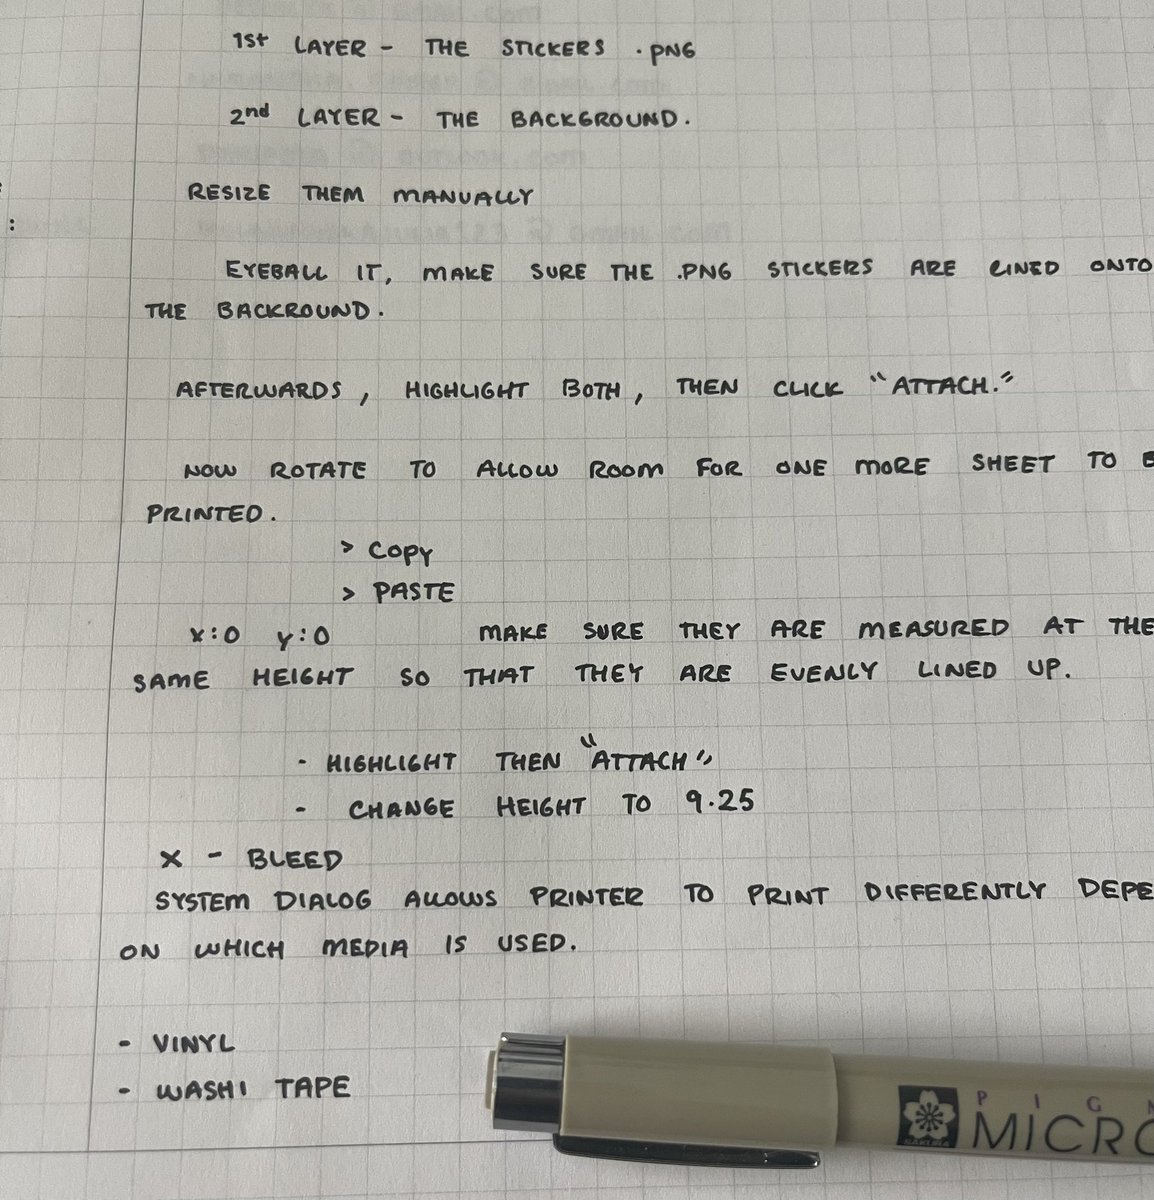 1st LAYER - THE STICKERS .PNG
2nd LAYER - THE BACKGROUND.
RESIZE THEM MANUALLY
:
EYEBALL IT, MAKE SURE THE .PNG STICKERS ARE LINED ONTO
THE BACKROUND.
AFTERWARDS, HIGHLIGHT BOTH, THEN CLICK "ATTACH."
NOW ROTATE TO ALLOW ROOM FOR ONE MORE SHEET TO
PRINTED.
> COPY
> PASTE
X:0 Y:0 MAKE SURE THEY ARE MEASURED AT THE
SAME HEIGHT SO THAT THEY ARE EVENLY LINED UP.
- HIGHLIGHT THEN "ATTACH"
- CHANGE HEIGHT TO 9.25
X - BLEED
SYSTEM DIALOG ALLOWS PRINTER TO PRINT DIFFERENTLY DEPE
ON WHICH MEDIA IS USED.
- VINYL
- WASHI TAPE
PIG
MICRO
SAKURA